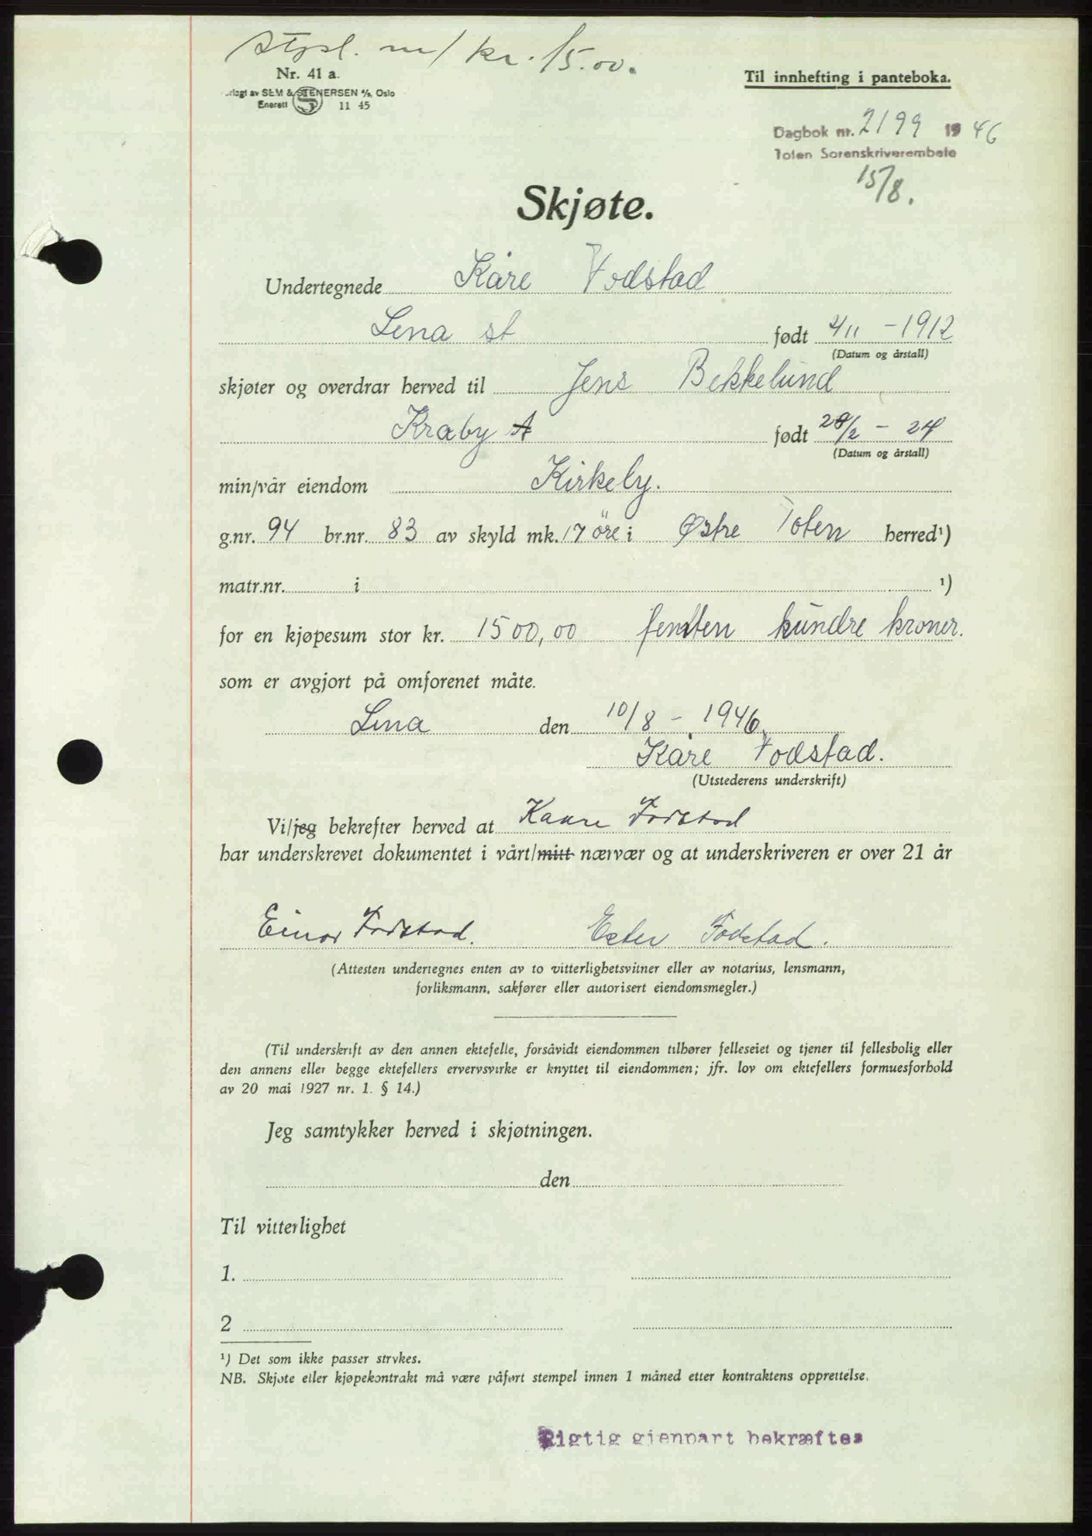 Stpl. m/ kr. 15.00.
Nr. 41 a.
Til innhefting i panteboka.
rlagt av SEM & STENERSEN A/S, Oslo
Enerett S 11 45
Dagbok nr. 2199 1946
Toten Sorenskriverembete
15/8.
Skjøte.
Undertegnede Kåre Fodstad
Lena st født 4/11 - 1912
(Datum og årstall)
skjøter og overdrar herved til Jens Bekkelund
Kraby st født 28/2 - 24
(Datum og årstall)
min/vår eiendom Kirkeby.
g.nr. 94 br.nr. 83 av skyld mk. 17 öre i Østre Toten herred¹)
matr.nr. i ¹)
for en kjøpesum stor kr. 1500,00 femten hundre kroner.
som er avgjort på omforenet måte.
Lena den 10/8 - 1946
Kåre Fodstad.
(Utstederens underskrift)
Vi/jeg bekrefter herved at Kaare Fodstad
har underskrevet dokumentet i vårt/mitt nærvær og at underskriveren er over 21 år
Einar Fodstad. Ester Fodstad.
(Attesten undertegnes enten av to vitterlighetsvitner eller av notarius, lensmann,
forliksmann, sakfører eller autorisert eiendomsmegler.)
(Til underskrift av den annen ektefelle, forsåvidt eiendommen tilhører felleseiet og tjener til fellesbolig eller
den annens eller begge ektefellers ervervsvirke er knyttet til eiendommen; jfr. lov om ektefellers formuesforhold
av 20 mai 1927 nr. 1. § 14.)
Jeg samtykker herved i skjøtningen.
den
Til vitterlighet
1.
2
¹) Det som ikke passer strykes.
NB. Skjøte eller kjøpekontrakt må være påført stempel innen 1 måned etter kontraktens opprettelse.
Rigtig gjenpart bekræftes